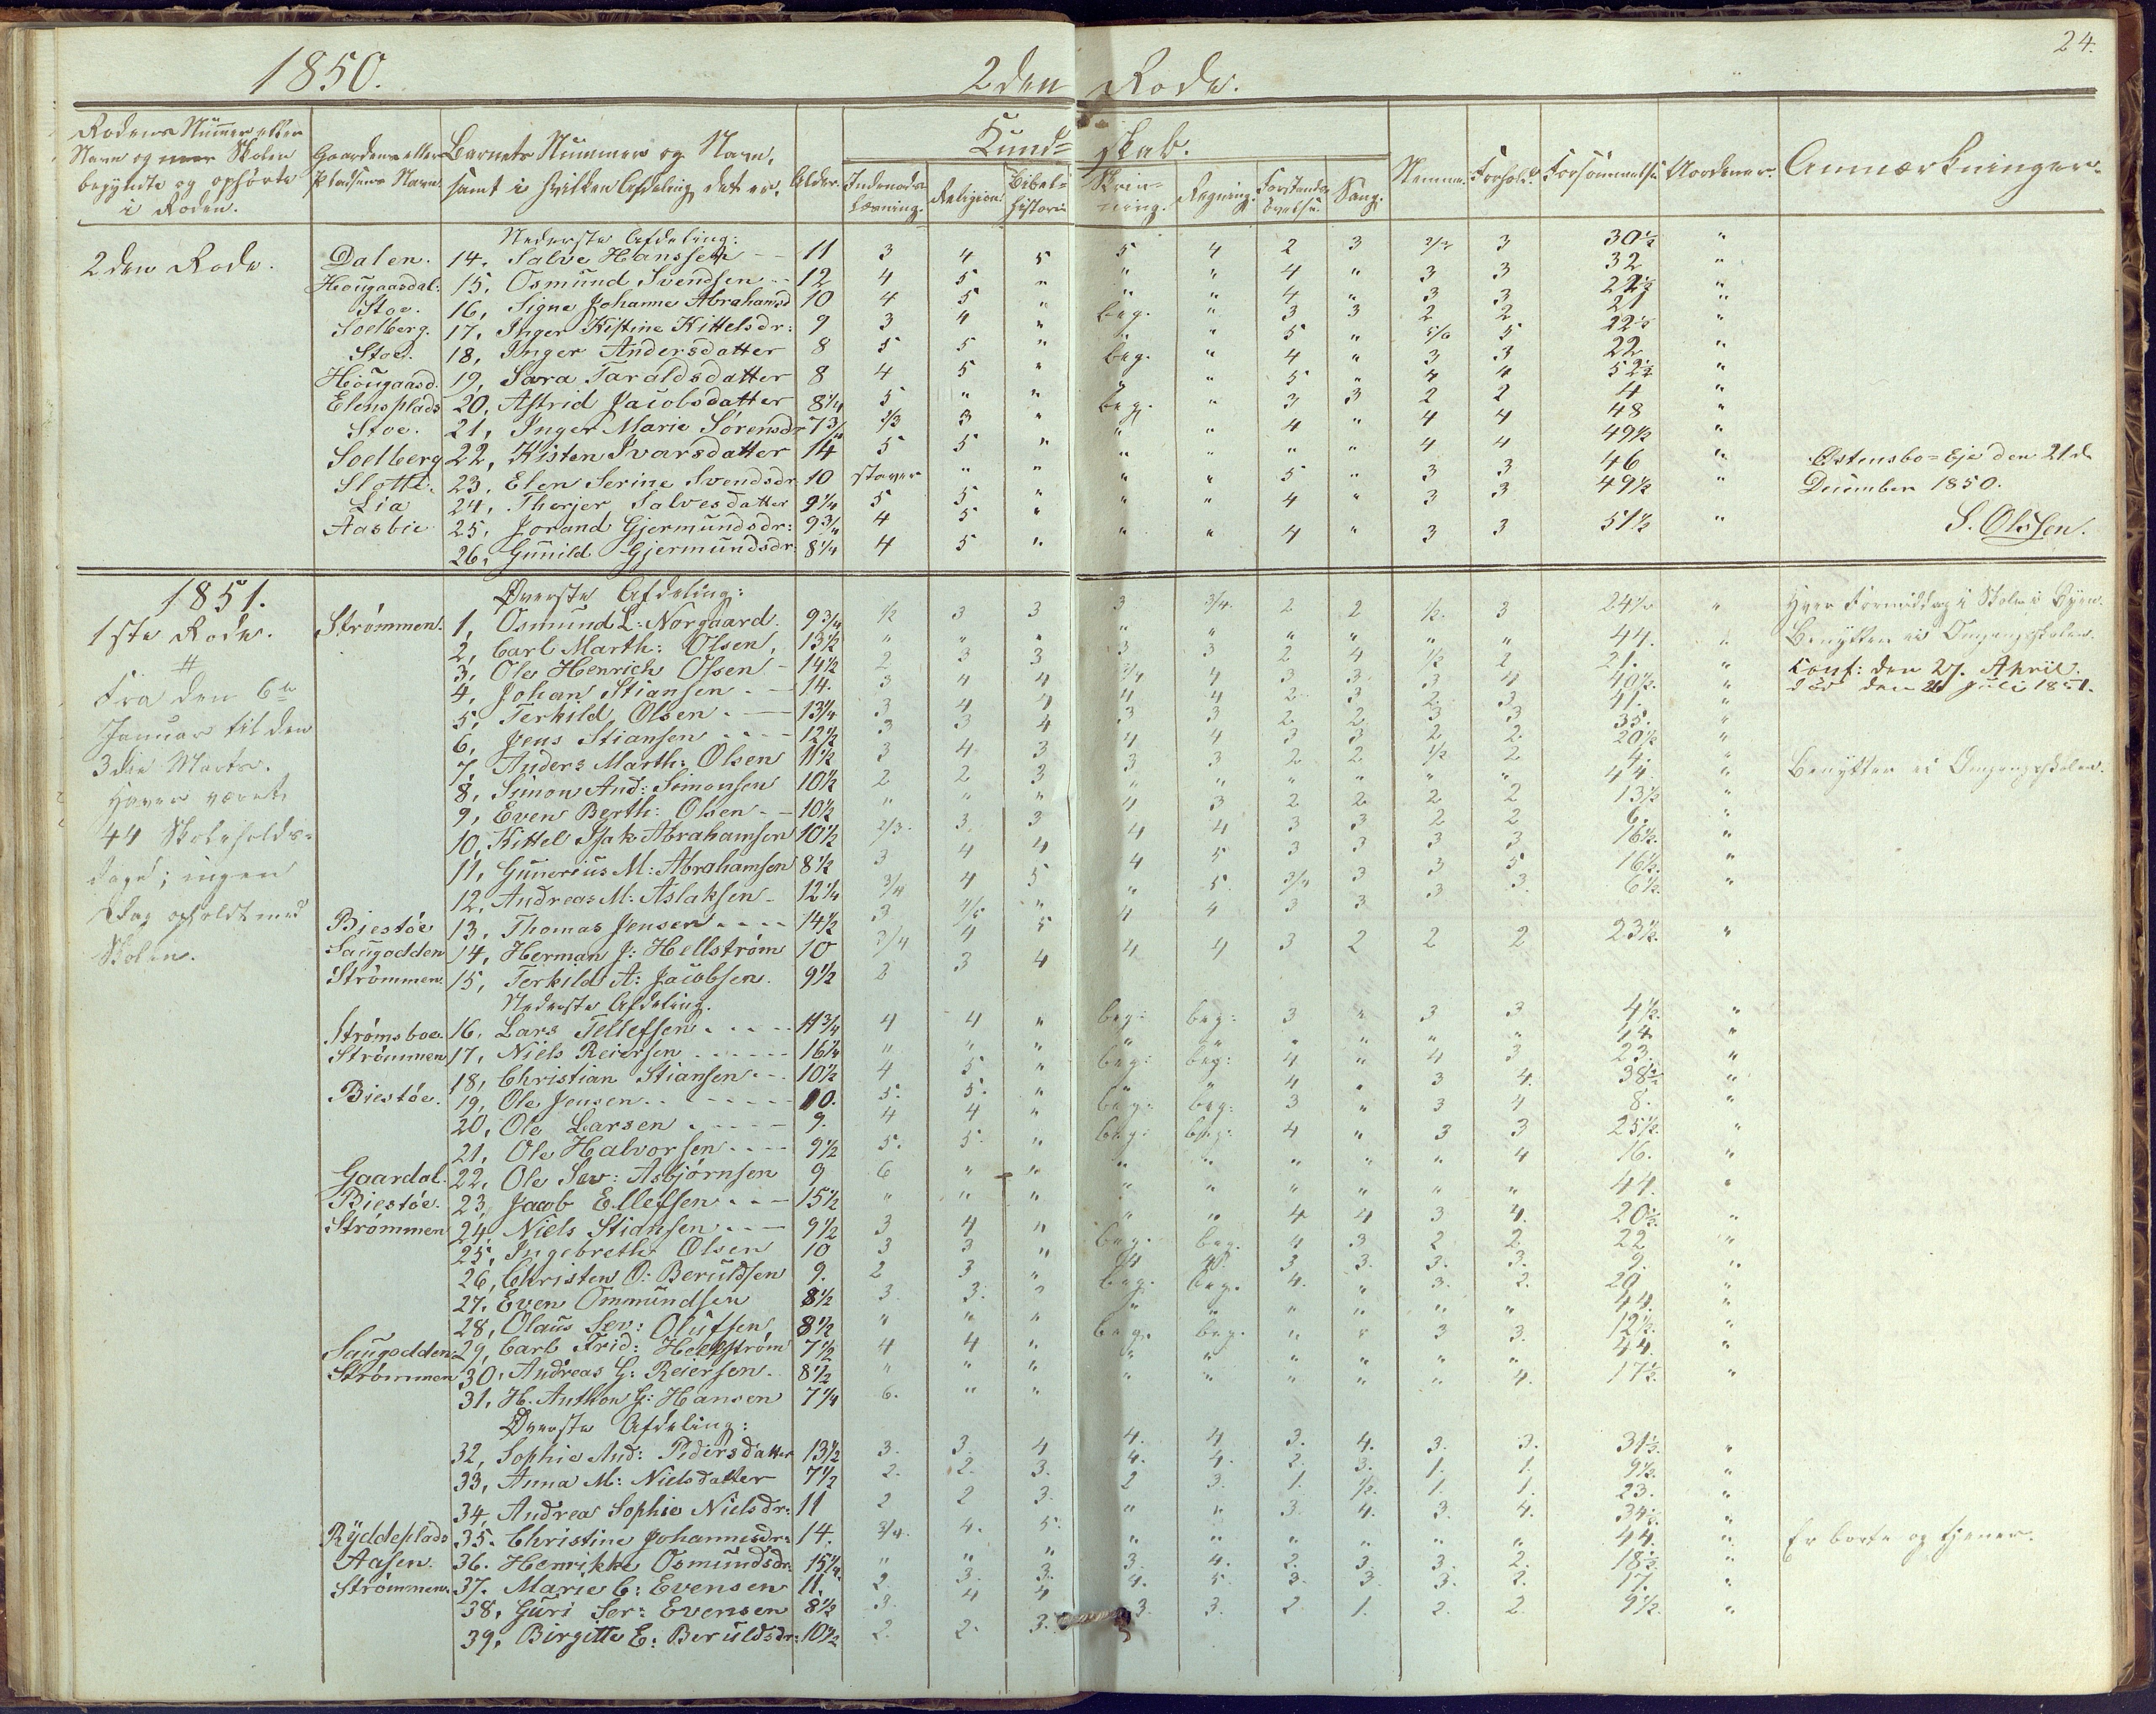 1850. 2den Rode. 24.
Rodens Nummer eller Navn og Skolen begyndte og ophørte i Roden. Gaardens eller Pladsens Navn. Barnets Nummer og Navn, samt i hvilken Afdeling det er. Alder. Kund= skab. Nemme. Forhold. Forsømmelse. Uordener. Anmærkninger.
Indenads Læsning. Religion. Bibel= historie. Skriv= ning. Regning. Forstands øvelse. Sang.
Nederste Afdeling:
2den Rode. Dalen. 14. Salve Hanssen 11 3 4 5 5 4 2 3 2/3 3 30½ "
Heougaasdal. 15, Osmund Svendsen 12 4 5 " " " 4 " 3 3 32 "
Stoe. 16, Signe Johanne Abrahamsd 10 4 5 " " " 4 " 3 3 22½ "
Soelberg. 17, Inger Kistine Kittelsdr: 9 3 4 " beg. " 3 3 2 2 21 "
Stoe. 18, Inger Andersdatter 8 5 5 " " " 5 " 5/6 5 22½ "
Heougaasd. 19, Sara Taraldsdatter 8 4 5 " beg. " 4 " 3 3 22 "
Elensplads 20, Astrid Jacobsdatter 8¼ 5 " " " " 5 " 4 4 52½ "
Stoe. 21, Inger Marie Sørensdr 7¾ 2/3 3 " beg. " 3 3 2 2 4 "
Soelberg 22, Kisten Ivarsdatter 14 5 5 " " " 4 " 4 4 48 "
Slotte. 23, Elen Serine Svendsdr 10 staver " " " " " " 4 4 49½ "
Lia 24, Therjer Salvesdatter 9¼ 5 5 " " " 5 " 3 3 46 "
Aasbie 25, Jorand Gjermundsdr: 9¾ 4 5 " " " 4 " 3 3 49½ "
26, Gunild Gjermundsdr 8¼ 4 5 " " " 4 " 3 3 51½ "
Østensbo=Eje den 21de
December 1850.
S. Olssen.
1851. Øverste Afdeling:
1ste Rode. Strømmen. 1, Osmund L: Norgaard. 9¾ ½ 3 3 3 3/4. 2 2 ½. 3 24½ " Hver Formiddag i Skole i Byen.
2, Carl Marth: Olsen, 13½ " " " " " " " " " 44. " Benytter ei Omgangsskolen.
3, Ole Henrich Olsen 14½ 2 3 3 3 3 2 4 ½ 2 21. " Conf: den 27. April.
4, Johan Stiansen 14. 3 4 4 3/4 4 3 3 3 4 40½. " død den 21 Juli 1851.
5, Terkild Olsen 13¼ 3 4 4 4 4 2 3 2 3 41. "
6, Jens Stiansen 12½ 3 3 4 3 3 2 2 3 3 35. "
7, Anders Marth: Olsen 11½ 3 4 3 4 4 3 3 2 2 20½ "
8, Simon And: Simonsen 10½ 2 2 3 3 3 2 2 ½ 2 4. "
9, Even Berth: Olsen 10½ " " " " " " " " " 44. " Benytter ei Omgangsskolen.
10, Kittel Isak Abrahamsen 10½ 2/3. 3. 3 4 3 2 2 2 2 13½ "
11, Gunerius M: Abrahamsen 8½ 3 4 4 4 4 3 3 2 2 6. "
12, Andreas M: Aslaksen 12¼ 3/4 4 5 4 5 3 3 3 3 16½. "
Biestøe 13, Thomas Jensen 14½ 3 4/5 " " 5. 3/4 3 3 5 16½. "
Saugodden 14, Herman J: Hellstrøm 10 3/4 4 5 4 4 3 3 3 3. 6½. "
Strømmen. 15, Terkild A: Jacobsen. 9½ 2 3 4 4 4 3 2 2 2 23½. "
Fra den 6te
Januar til den
3die Marts.
Haver været
44 Skoleholds=
dage; ingen
Dag opholdt med
Skolen.
Nederste Afdeling.
Strømsboe. 16, Lars Tellefsen 11¾ 4 4 " beg: beg: 3 " 3 3 4½. "
Strømmen 17, Niels Reiersen 16¼ " " " " " " " " " 14. "
18, Christian Stiansen 10½ 4 5 " beg: beg: 4 " 4 3 23. "
Biestøe. 19, Ole Jensen 10. 5. 5. " " " 4 " 3 4. 38½ "
20, Ole Larsen 9. 4 4 " beg: beg: 3 " 3 4 8. "
21, Ole Halvorsen 9½ 5. 5. " beg: beg: 4 " 3 3 25½. "
Gaardal. 22, Ole Sev: Asbjørnsen 9 6 " " " " " " " 4 16. "
Biestøe. 23, Jacob Ellefsen 15½ " " " " " " " " " 44. "
Strømmen 24, Niels Stiansen 9½ 3 4 " " " 4 4 3 4. 20½. "
25, Ingebreth Olsen 10 3 3 " beg. beg. 4 3 2 2 22 "
26, Christen O: Beruldsen 9. 2 3 " 4 4. 3 3. 3. 3. 9. "
27, Even Ommundsen 8½ 3. 3. " beg. beg. 4. " 3. 2. 20 "
28, Olaus Sev: Olufsen 8½ " " " " " " " " " 44. "
Saugodden 29, Carl Frid: Hellstrøm 7½ 4 4 " beg. beg. " " 3 3. 12½. "
Strømmen 30, Andreas G: Reiersen. 8½ " " " " " " " " " 44. "
31, H. Anthon G: Hansen 7¼ 6. " " " " " " " 4. 17½. "
Øverste Afdeling:
32, Sophie And: Pedersdatter 13½ 3. 3. 4 4. 4 3. 4. 3. 3. 31½. "
33, Anna M: Nielsdatter 7½ 2. 2. 3. 4. 4. 2. 3. 1. 1. 9½. "
34, Andrea Sophie Nielsdr: 11 2 2 3. 2 3. 1. ½. 1. 1. 23. "
Ryddeplads 35. Christine Johannesdr: 14. 3/4. 4. 5. " " 3. 4. 3. 4. 34½. "
Aasen. 36. Henrikke Osmundsdr. 15¼. " " " " " " " " " 44. " Er borte og tjener.
Strømmen. 37. Marie C: Evensen 11. 2. 3. 3. 3. 4. 2. 3. 3. 2. 18½. "
38, Guri Ser: Evensen 8½ 3. 4 4 4. 5. 3. 3. 3. 2. 17. "
39, Birgitte E: Beruldsdr: 10½ 2. 2. 3. 3. 3. 2 1. 2. 2. 9½. "